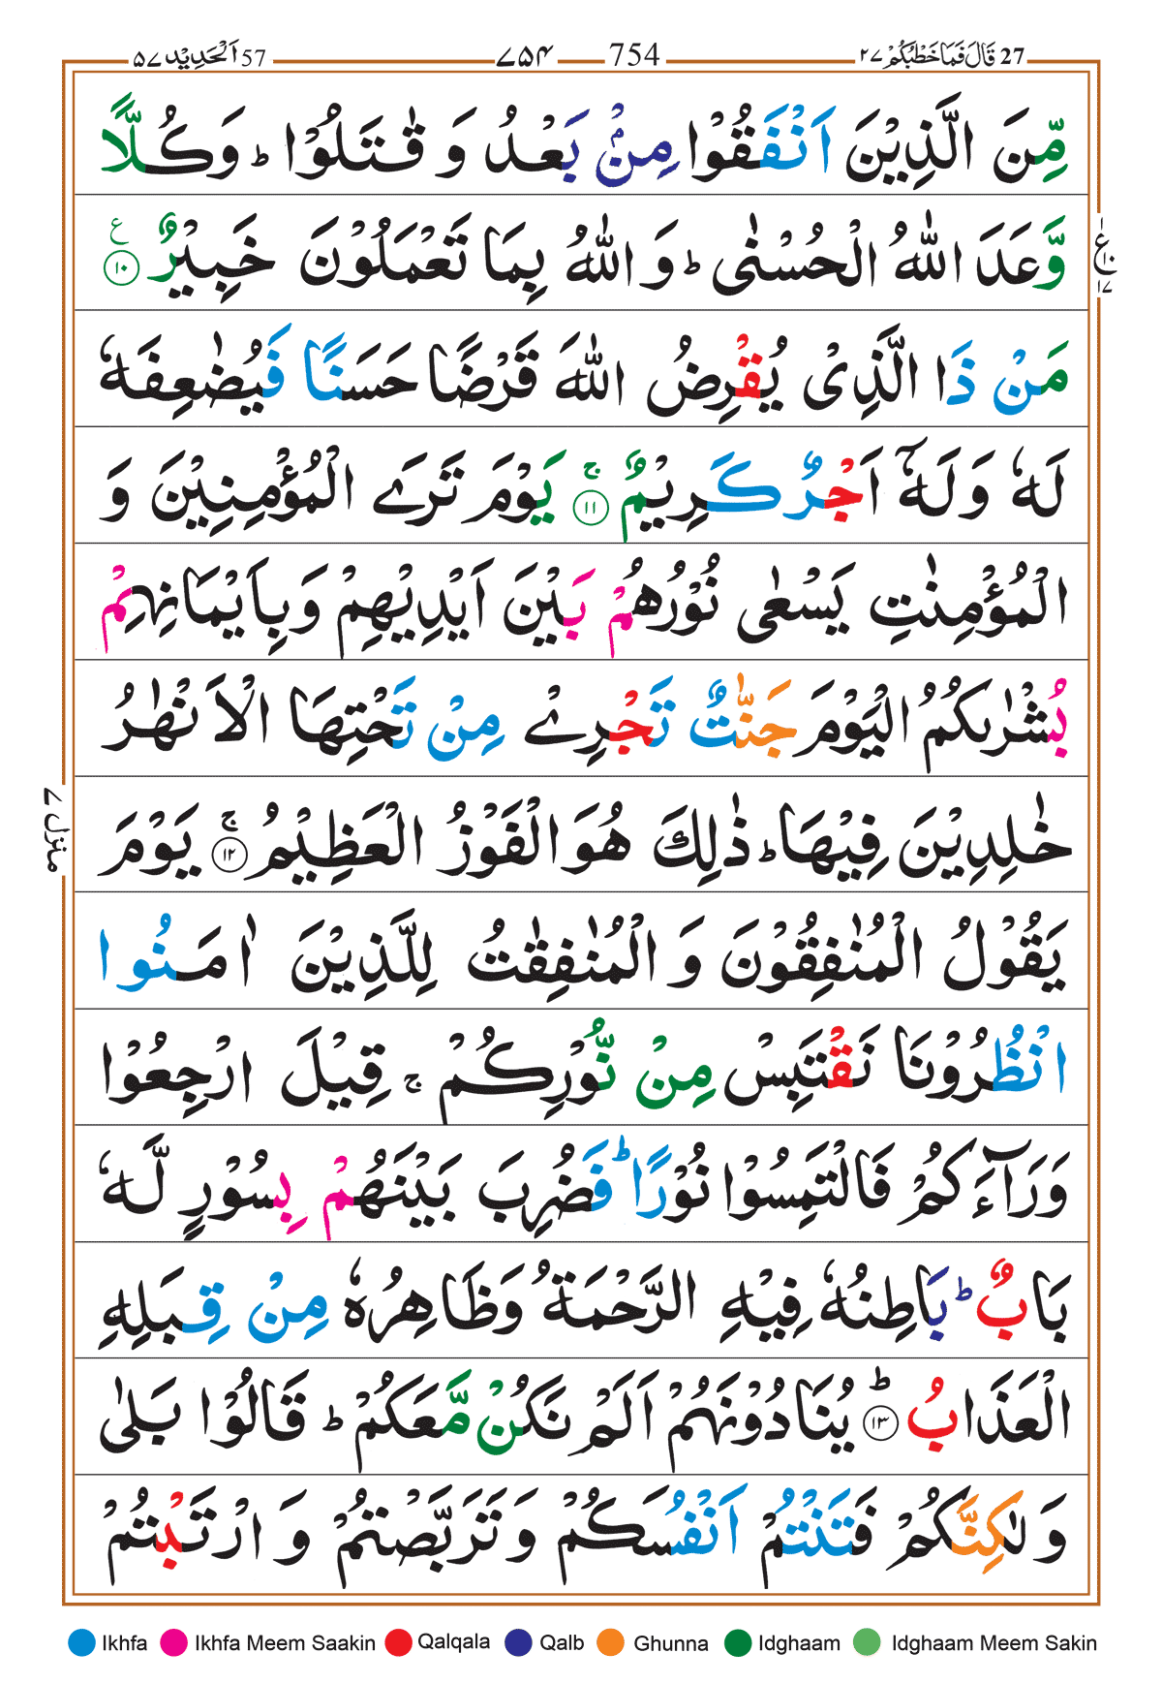 57 اَلْحَدِیْد ۵۷ ۷۵۴ 754 27 قَالَ فَمَا خَطْبُكُمْ ۲۷
مِّنَ الَّذِیْنَ اَنْفَقُوْا مِنْۢ بَعْدُ وَ قٰتَلُوْا ؕ وَكُلًّا
وَّعَدَ اللّٰهُ الْحُسْنٰی ؕ وَ اللّٰهُ بِمَا تَعْمَلُوْنَ خَبِیْرٌ ۱۰ ع
ع ۱ ۱۰ ۱۷
مَنْ ذَا الَّذِیْ یُقْرِضُ اللّٰهَ قَرْضًا حَسَنًا فَیُضٰعِفَهٗ
لَهٗ وَ لَهٗۤ اَجْرٌ كَرِیْمٌ ۱۱ ۚ یَوْمَ تَرَی الْمُؤْمِنِیْنَ وَ
الْمُؤْمِنٰتِ یَسْعٰی نُوْرُهُمْ بَیْنَ اَیْدِیْهِمْ وَ بِاَیْمَانِهِمْ
بُشْرٰىكُمُ الْیَوْمَ جَنّٰتٌ تَجْرِیْ مِنْ تَحْتِهَا الْاَنْهٰرُ
خٰلِدِیْنَ فِیْهَا ؕ ذٰلِكَ هُوَ الْفَوْزُ الْعَظِیْمُ ۱۲ ۚ یَوْمَ
منزل ۷
یَقُوْلُ الْمُنٰفِقُوْنَ وَ الْمُنٰفِقٰتُ لِلَّذِیْنَ اٰمَنُوا
انْظُرُوْنَا نَقْتَبِسْ مِنْ نُّوْرِكُمْ ۚ قِیْلَ ارْجِعُوْا
وَرَآءَكُمْ فَالْتَمِسُوْا نُوْرًا ؕ فَضُرِبَ بَیْنَهُمْ بِسُوْرٍ لَّهٗ
بَابٌ ؕ بَاطِنُهٗ فِیْهِ الرَّحْمَةُ وَ ظَاهِرُهٗ مِنْ قِبَلِهِ
الْعَذَابُ ۱۳ ؕ یُنَادُوْنَهُمْ اَلَمْ نَكُنْ مَّعَكُمْ ؕ قَالُوْا بَلٰی
وَ لٰكِنَّكُمْ فَتَنْتُمْ اَنْفُسَكُمْ وَ تَرَبَّصْتُمْ وَ ارْتَبْتُمْ
Ikhfa Ikhfa Meem Saakin Qalqala Qalb Ghunna Idghaam Idghaam Meem Sakin